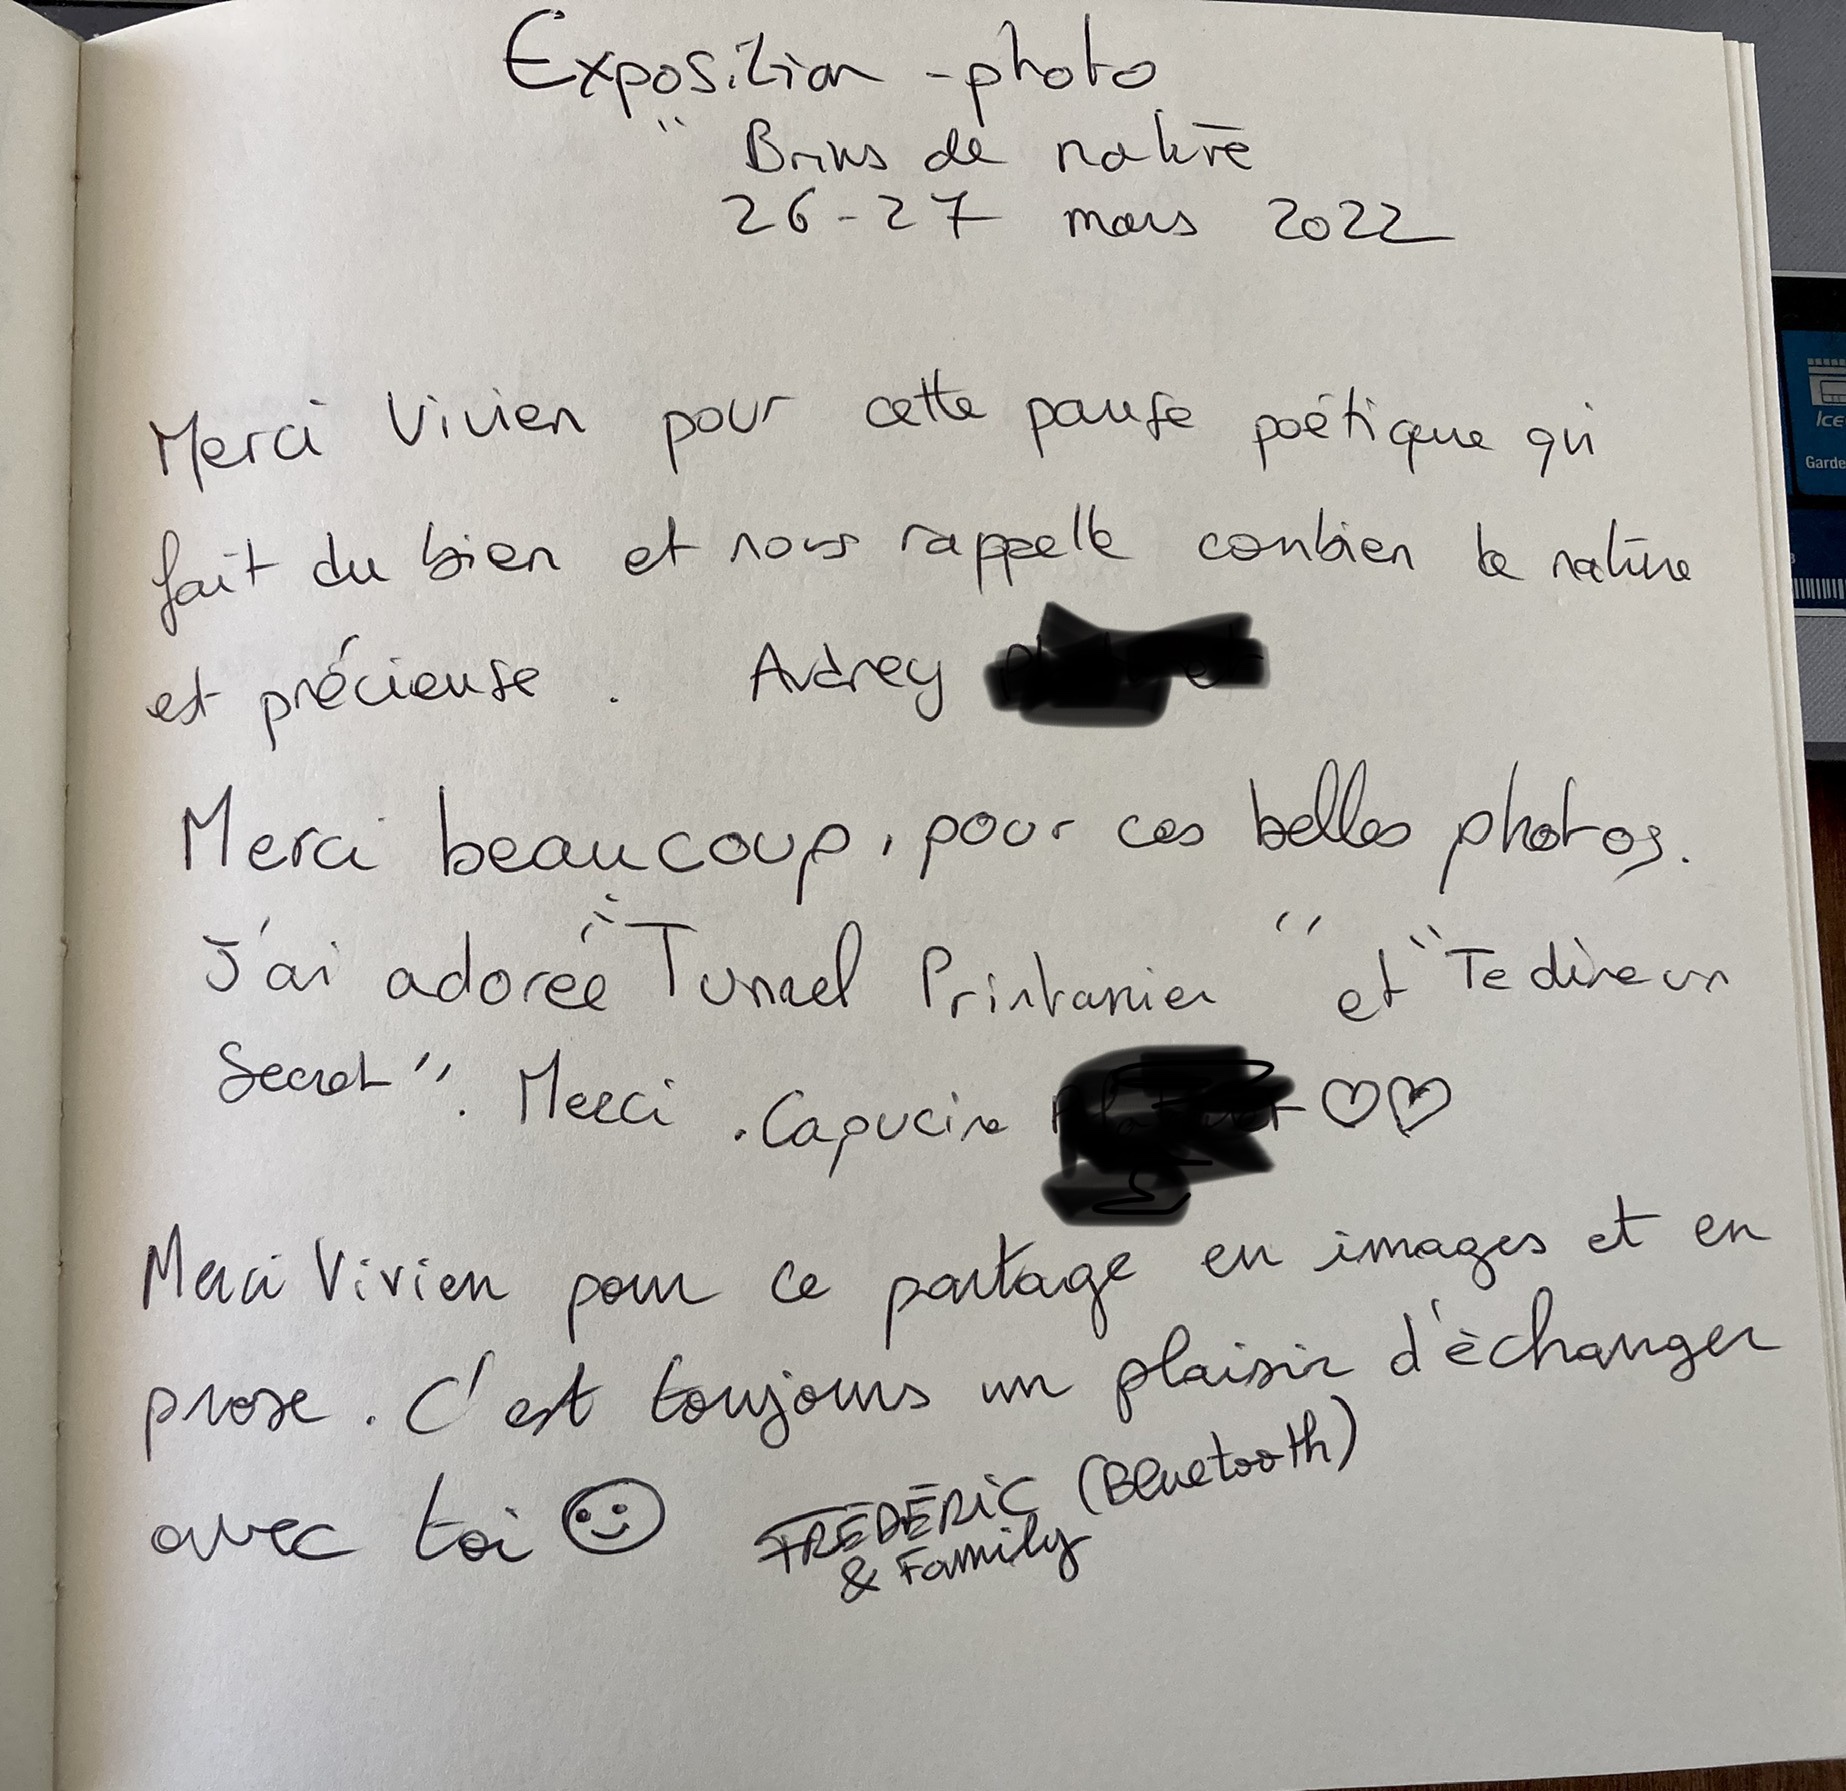 Exposition - photo
" Brins de nature
26-27 mars 2022
Merci Vivien pour cette pause poétique qui
fait du bien et nous rappelle combien la nature
est précieuse. Audrey
Merci beaucoup, pour ces belles photos.
J'ai adorée "Tunnel Printanier" et "Te dire un
Secret". Merci. Capucine ♡♡
Merci Vivien pour ce partage en images et en
prose. C'est toujours un plaisir d'échanger
avec toi ☺ FRÉDÉRIC (Bluetooth)
& Family
ICE
Garde